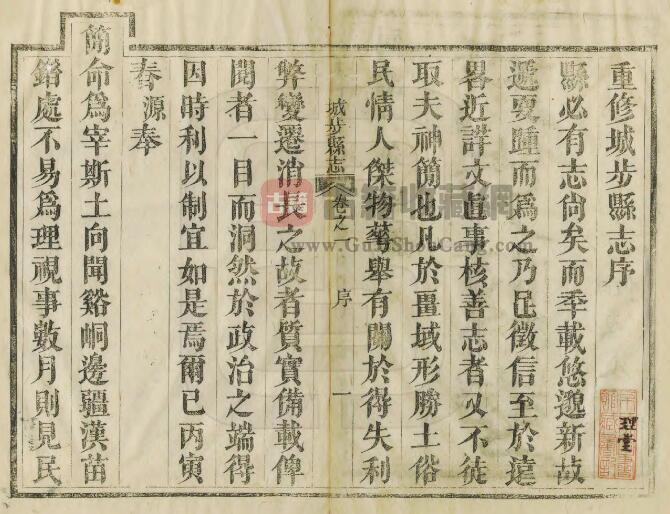 重修城步縣志序
縣必有志尚矣而秊載悠邈新故
遞更踵而爲之乃足徵信至於遠
畧近詳文直事核善志者又不徒
取夫神簡也凡於畺域形勝土俗
民情人傑物舉有關於得失利
城步縣志 卷之 序 一
弊變遷消長之故者質實備載俾
閱者一目而洞然於政治之端得
因時利以制宜如是焉爾已丙寅
春源奉
簡命爲宰斯土向聞谿峒邊疆漢苗
錯處不易爲理視事數月則見民
理堂
古籍收藏网
www.GujiShouCang.com